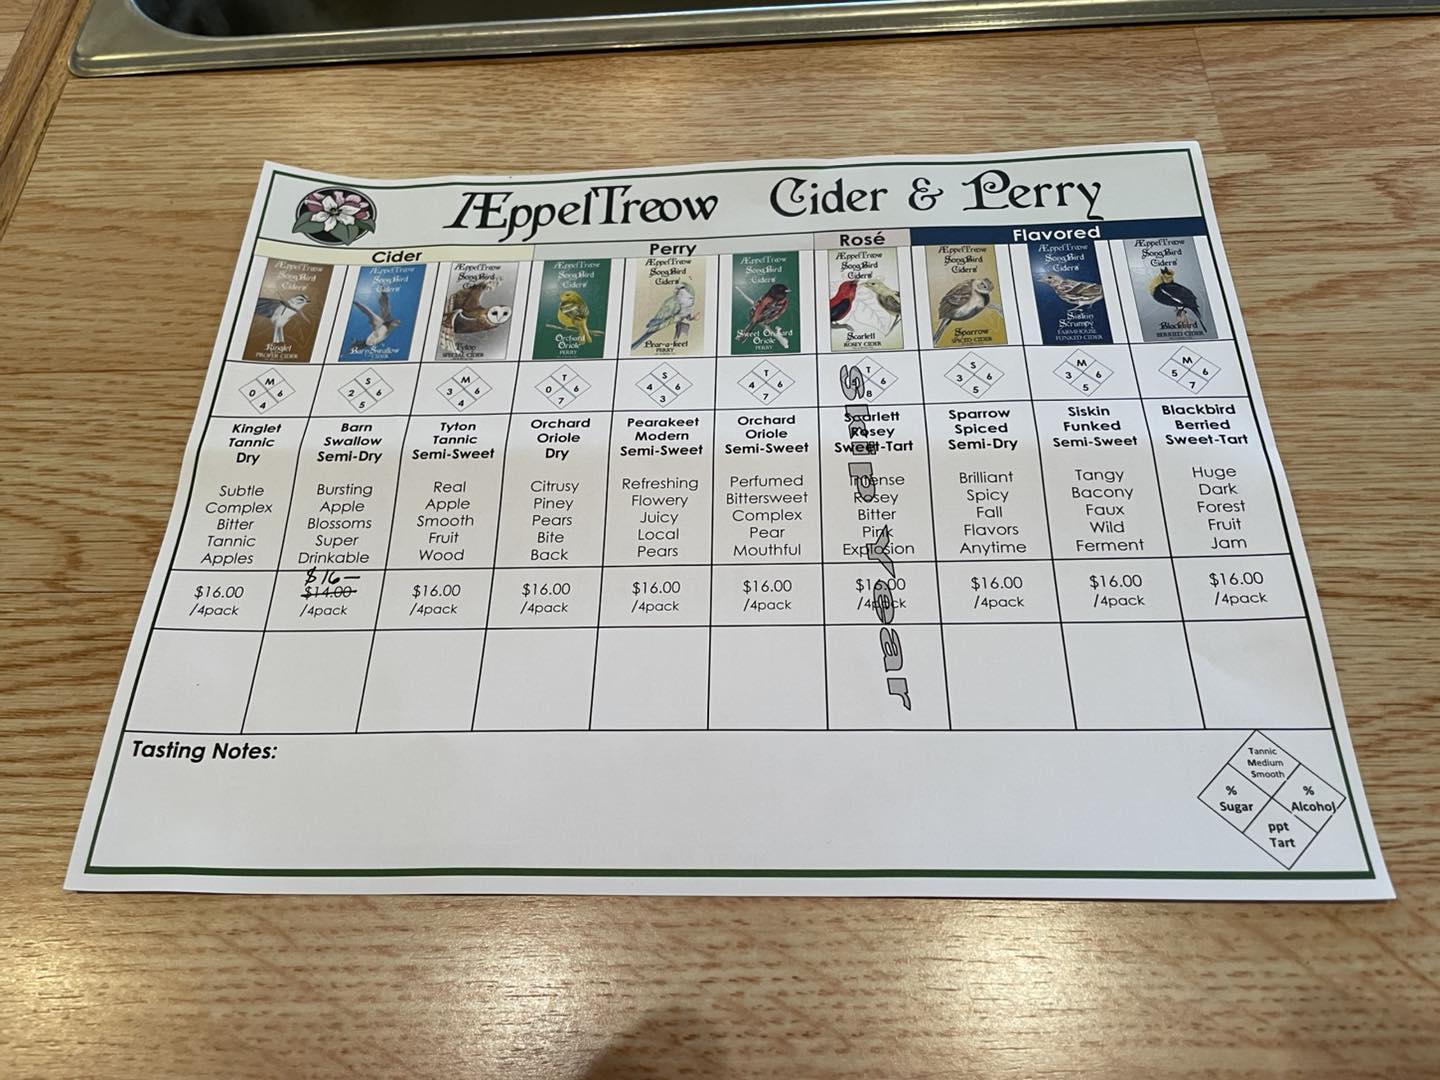 ÆppelTreow Cider & Perry
Cider
Perry
Rosé
Flavored
ÆppelTreow
SongBird
Ciders
Kinglet
PROPER CIDER
ÆppelTreow
SongBird
Ciders
Barn Swallow
CIDER
ÆppelTreow
SongBird
Ciders
Tyton
SPECIAL CIDER
ÆppelTreow
SongBird
Ciders
Orchard
Oriole
PERRY
ÆppelTreow
SongBird
Ciders
Pear-a-keet
PERRY
ÆppelTreow
SongBird
Ciders
Sweet Orchard
Oriole
ÆppelTreow
SongBird
Ciders
Scarlett
ROSEY CIDER
ÆppelTreow
SongBird
Ciders
Sparrow
SPICED CIDER
ÆppelTreow
SongBird
Ciders
Siskin
Scrumpy
FARMHOUSE
FUNKED CIDER
ÆppelTreow
SongBird
Ciders
Blackbird
BERRIED CIDER
M
0 6
4
S
2 6
5
M
3 6
4
T
0 6
7
S
4 6
3
T
4 6
7
T
6
8
S
3 6
5
M
3 6
5
M
5 6
7
Kinglet
Tannic
Dry
Barn
Swallow
Semi-Dry
Tyton
Tannic
Semi-Sweet
Orchard
Oriole
Dry
Pearakeet
Modern
Semi-Sweet
Orchard
Oriole
Semi-Sweet
Scarlett
Rosey
Sweet-Tart
Sparrow
Spiced
Semi-Dry
Siskin
Funked
Semi-Sweet
Blackbird
Berried
Sweet-Tart
Subtle
Complex
Bitter
Tannic
Apples
Bursting
Apple
Blossoms
Super
Drinkable
Real
Apple
Smooth
Fruit
Wood
Citrusy
Piney
Pears
Bite
Back
Refreshing
Flowery
Juicy
Local
Pears
Perfumed
Bittersweet
Complex
Pear
Mouthful
Intense
Rosey
Bitter
Pink
Explosion
Brilliant
Spicy
Fall
Flavors
Anytime
Tangy
Bacony
Faux
Wild
Ferment
Huge
Dark
Forest
Fruit
Jam
$16.00
/4pack
$16—
$14.00
/4pack
$16.00
/4pack
$16.00
/4pack
$16.00
/4pack
$16.00
/4pack
$16.00
/4pack
$16.00
/4pack
$16.00
/4pack
$16.00
/4pack
Year
Tasting Notes:
Tannic
Medium
Smooth
%
Sugar
%
Alcohol
ppt
Tart